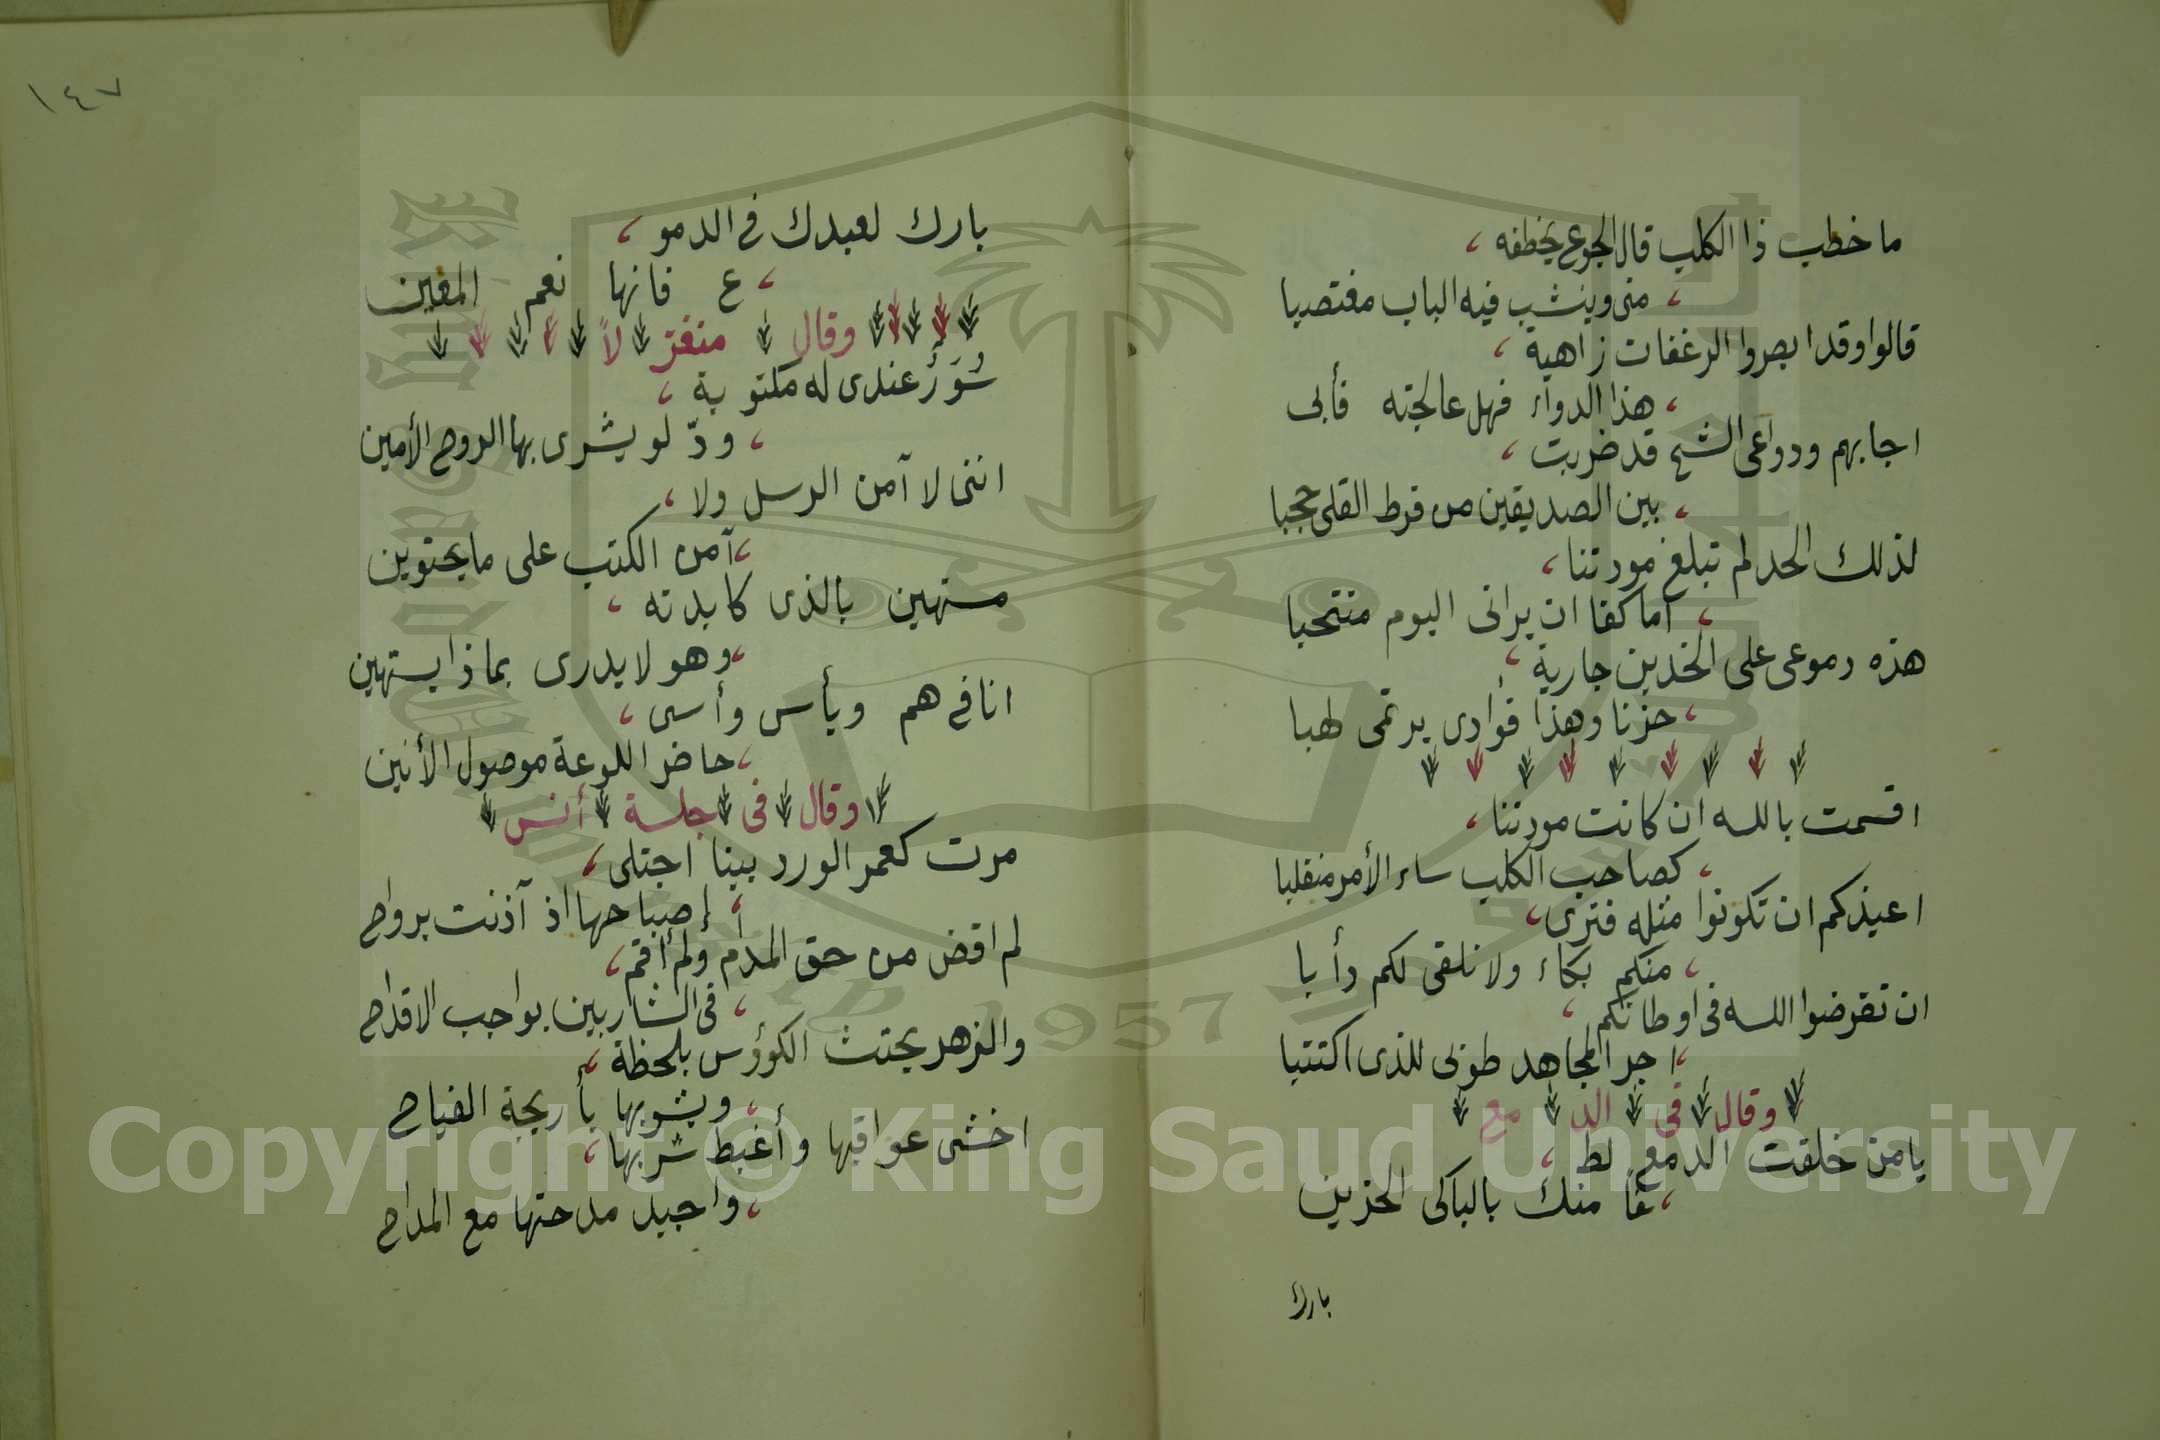 ما خطب ذا الكلب قال الجوع يخطفه ،
، منى وينشب فيه الباب مغتصبا
قالوا وقد ابصروا الرغفات زاهية ،
، هذا الدواء فهل عالجته فأبى
اجابهم ودواعى الشح قد ضربت ،
، بين الصديقين من فرط القلى حجبا
لذلك الحد لم تبلغ مودتنا ،
، اما كفا ان يرانى اليوم منتحبا
هذه دموعى على الخدين جارية ،
، حزنا وهذا فؤادى يرتمى لهبا
اقسمت بالله ان كانت مودتنا ،
، كصاحب الكلب ساء الأمر منقلبا
اعيذكم ان تكونوا مثله فترى ،
، منكم بكاء ولا نلقى لكم دأبا
ان تقرضوا الله فى اوطانكم ،
، اجر المجاهد طوبى للذى اكتتبا
وقال فى الد مع
يا من خلقت الدمع لط ،
، فا منك بالباكى الحزين
بارك
١٤٧
بارك لعبدك فى الدمو ،
، ع فانها نعم المعين
وقال متغزلاً
سُوَرٌ عندى له مكتوبة ،
، ودّ لو يشرى بها الروح الأمين
اننى لا آمن الرسل ولا ،
، آمن الكتب على ما يحتوين
مستهين بالذى كابدته ،
، وهو لا يدرى بماذا يستهين
انا فى هم ويأس وأسى ،
، حاضر اللوعة موصول الأنين
وقال فى جلسة أنس
مرت كعمر الورد بينا اجتلى ،
، إصباحها اذ آذنت برواح
لم اقض من حق المدام ولم أقم ،
، فى الشاربين بواجب الاقداح
والزهر يحتث الكوؤس بلحظة ،
، ويشوبها بأريجة الفياح
اخشى عواقبها وأغبط شربها ،
، واجيد مدحتها مع المداح
1957
Copyright © King Saud University